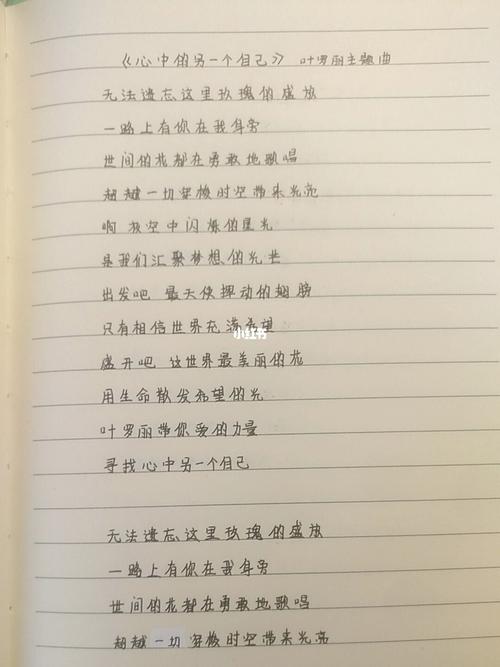 《心中的另一个自己》 叶罗丽主题曲
无法遗忘这里玫瑰的盛放
一路上有你在我身旁
世间的花都在勇敢地歌唱
超越一切穿梭时空带来光亮
啊 夜空中闪烁的星光
是我们汇聚梦想的光芒
出发吧 最天使挥动的翅膀
只有相信世界充满希望
小红书
盛开吧 这世界最美丽的花
用生命散发希望的光
叶罗丽带你爱的力量
寻找心中另一个自己
无法遗忘这里玫瑰的盛放
一路上有你在我身旁
世间的花都在勇敢地歌唱
超越一切穿梭时空带来光亮